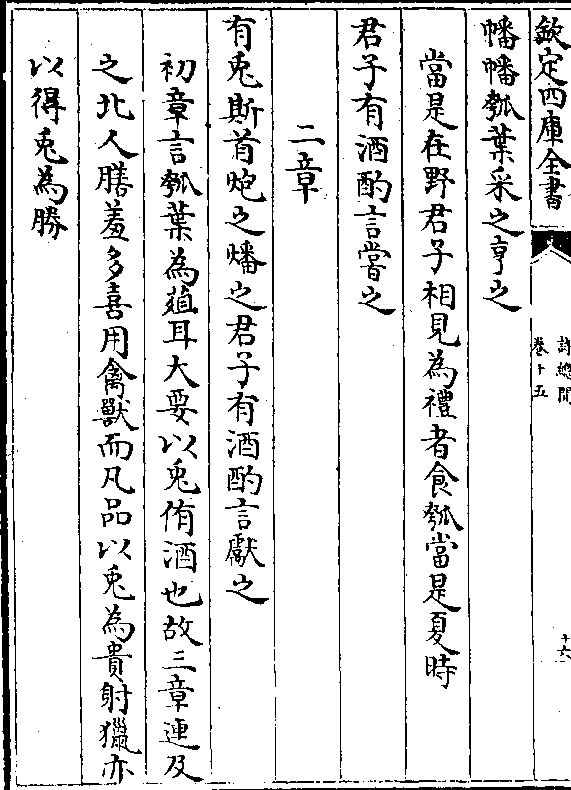 欽定四庫全書
詩總聞
卷十五
十六
幡幡瓠葉采之亨之
當是在野君子相見為禮者食瓠當是夏時
君子有酒酌言嘗之
二章
有兎斯首炮之燔之君子有酒酌言獻之
初章言瓠葉為葅耳大要以兎侑酒也故三章連及
之北人膳羞多喜用禽獸而凡品以兎為貴射獵亦
以得兎為勝